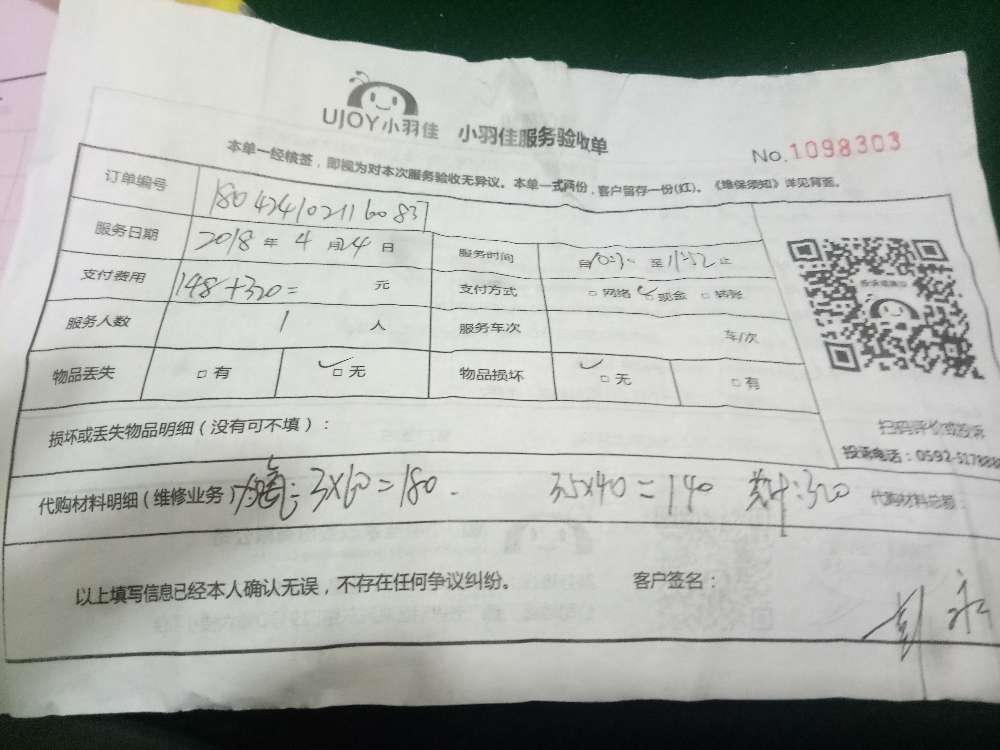 UJOY小羽佳 小羽佳服务验收单
No.1098303
本单一经核签，即视为对本次服务验收无异议。本单一式两份，客户留存一份(红)。《维保须知》详见背签。
订单编号 1804241021160837
服务日期 2018 年 4 月 24 日 服务时间 自 10:30 至 11:52 止
支付费用 148+320= 元 支付方式 □网络 ✓□现金 □转账
服务人数 1 人 服务车次 车/次
物品丢失 □有 ✓□无 物品损坏 ✓□无 □有
扫码评价或投诉
损坏或丢失物品明细（没有可不填）：
投诉电话：0592-5178888
代购材料明细（维修业务） 3×60=180. 35×40=140 共计:320 代购材料总额：
以上填写信息已经本人确认无误，不存在任何争议纠纷。 客户签名：